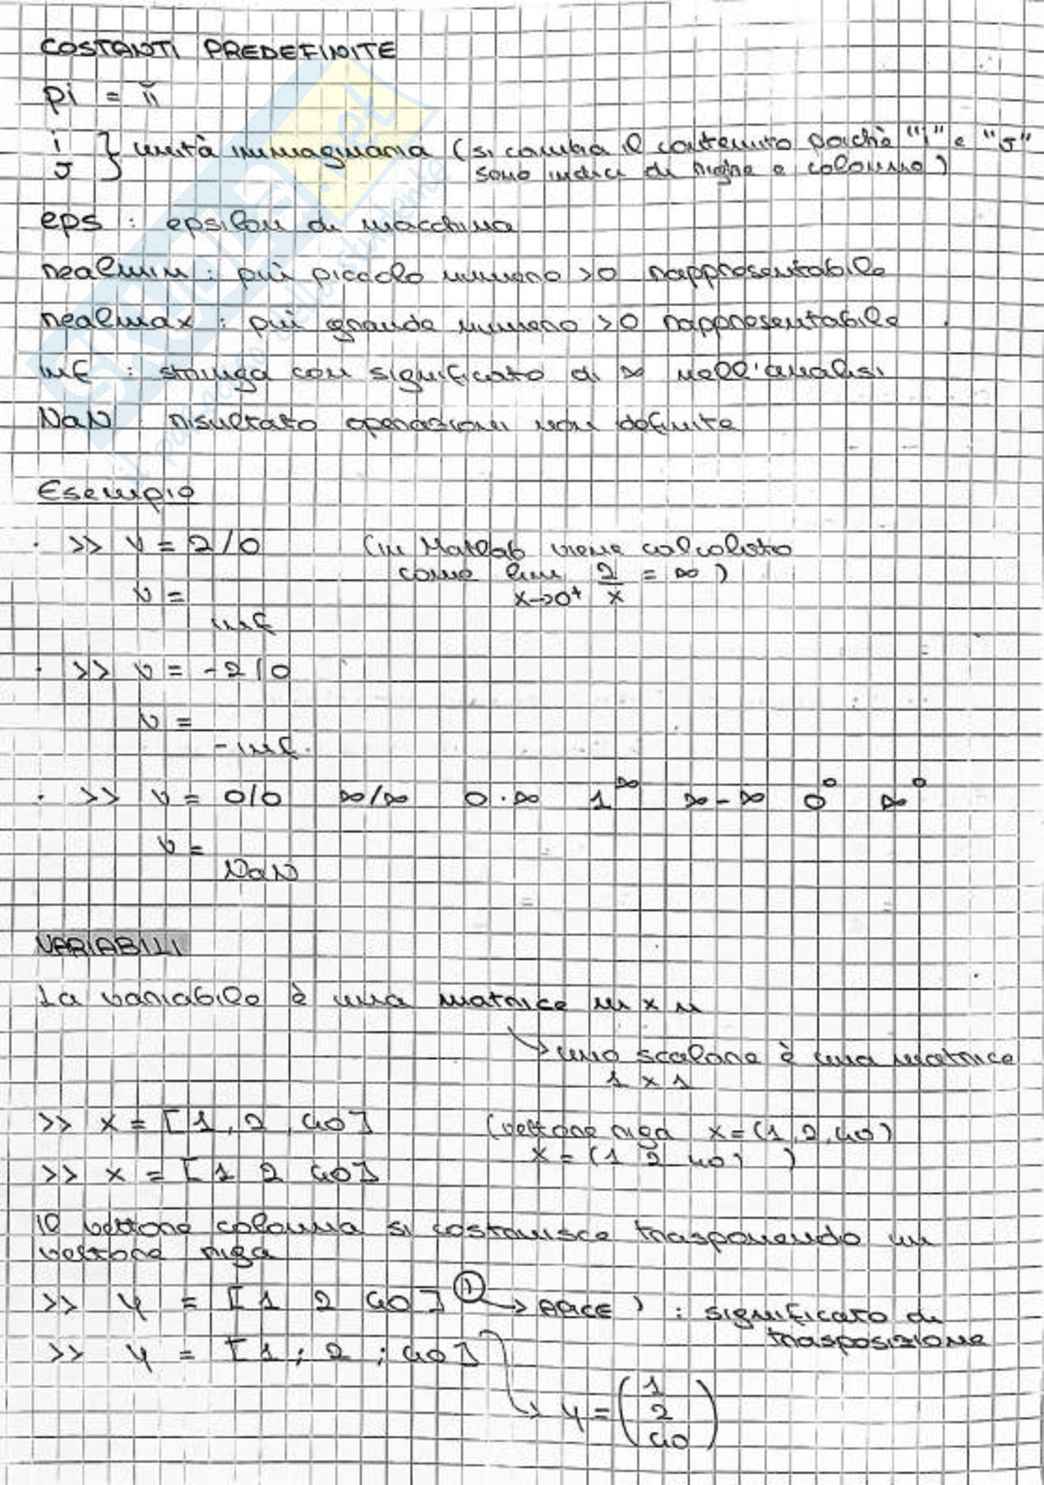 COSTANTI PREDEFINITE
pi = π
i
J } unità immaginaria (si cambia il contenuto poichè "i" e "J"
sono indici di righe e colonne)
eps : epsilon di macchina
realmin : più piccolo numero >0 rappresentabile
realmax : più grande numero >0 rappresentabile
inf : stringa con significato di ∞ nell'analisi
NaN : risultato operazioni non definite
Esempio
· >> v = 2/0 (in Matlab viene calcolato
come lim x→0+ 2/x = ∞ )
v =
inf
· >> v = -2/0
v =
-inf.
· >> v = 0/0 ∞/∞ 0·∞ 1^∞ ∞-∞ 0^0 ∞^0
v =
NaN
VARIABILI
La variabile è una matrice m x n
→ uno scalare è una matrice
1 x 1
>> x = [1, 2, 40] (vettore riga x = (1, 2, 40)
x = (1 2 40) )
>> x = [1 2 40]
Il vettore colonna si costruisce trasponendo un
vettore riga
>> y = [1 2 40] ' → APICE ' : significato di
trasposizione
>> y = [1 ; 2 ; 40]
→ y = (1
2
40)
skuola.net
il paradiso dello studente